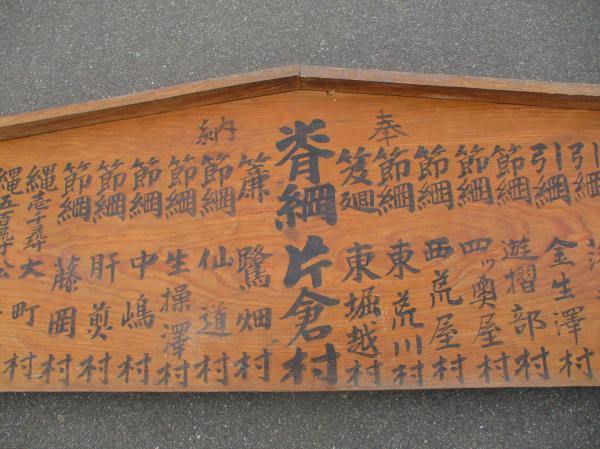 奉
納
引綱
引綱 金生澤村
節綱 遊摺部村
節綱 四ッ奥屋村
節綱 西荒屋村
節綱 東荒川村
笈廻 東堀越村
脊綱 片倉村
簾 鷺畑村
節綱 仙道村
節綱 生操澤村
節綱 中嶋村
節綱 肝煎村
節綱 藤岡村
縄壱千尋 大町村
縄五百